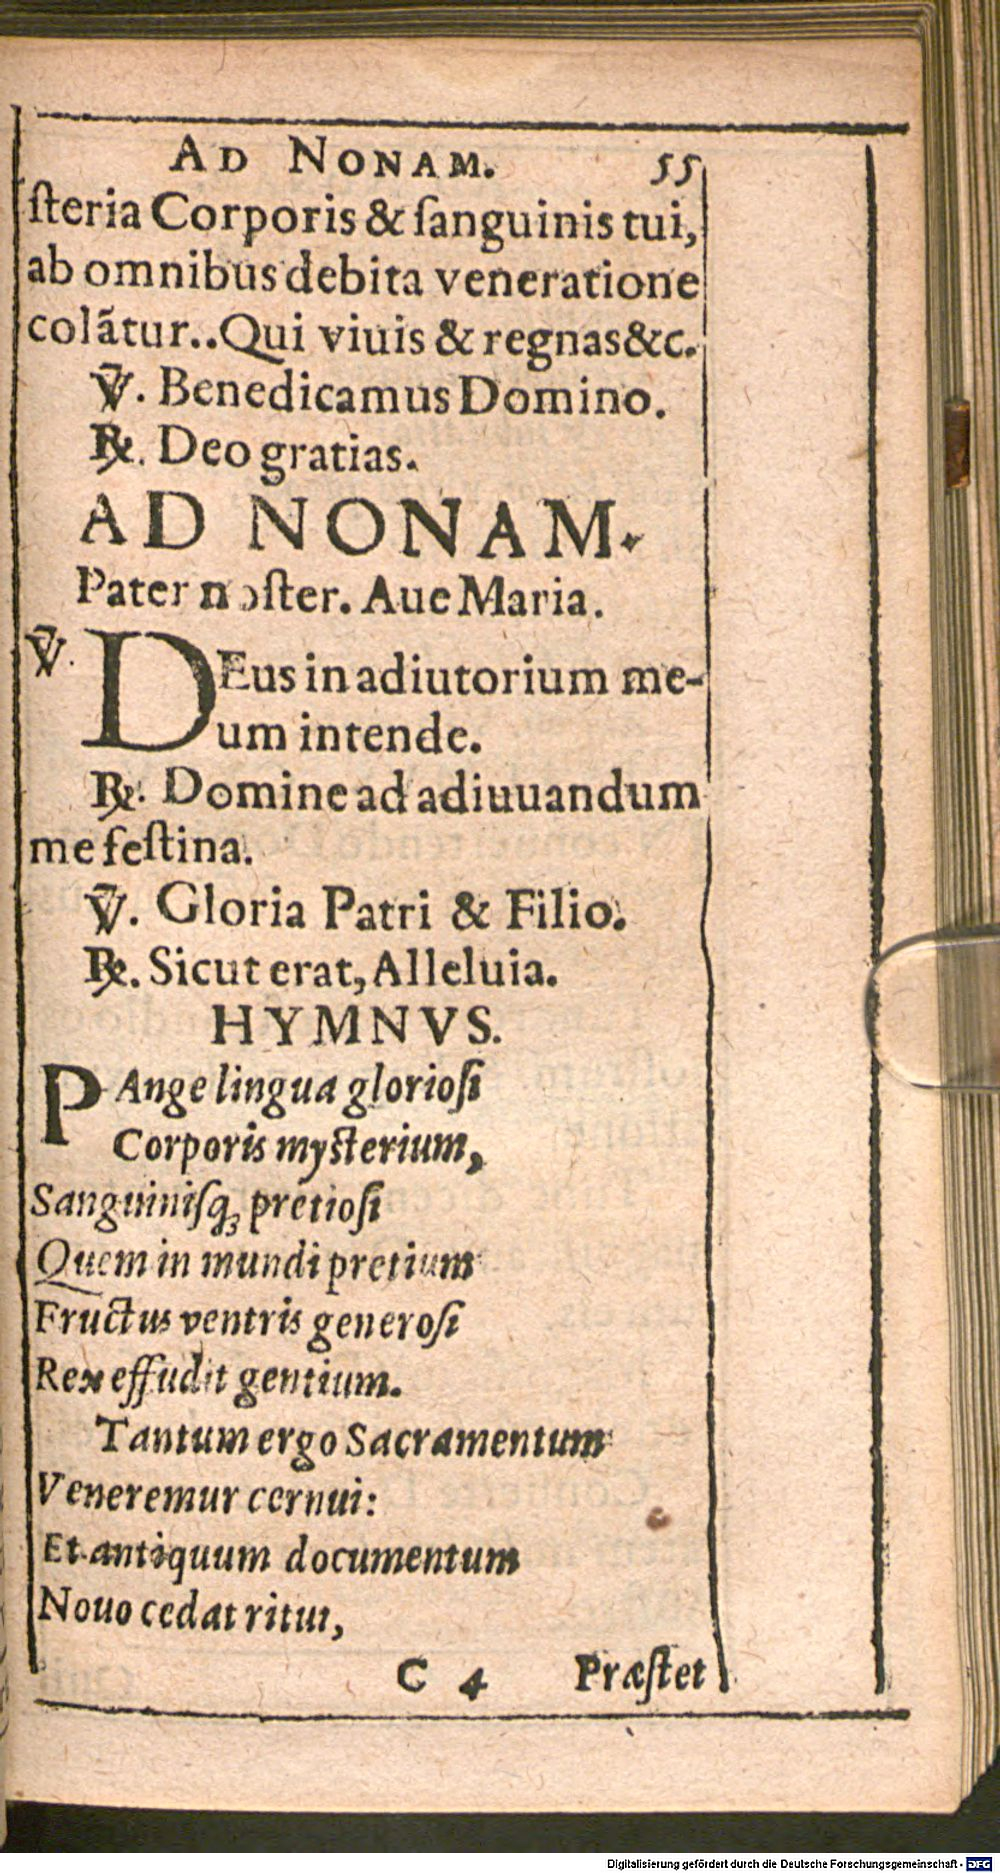 AD NONAM. 55
ſteria Corporis & ſanguinis tui,
ab omnibus debita veneratione
colãtur.. Qui viuis & regnas &c.
℣. Benedicamus Domino.
℟. Deo gratias.
AD NONAM.
Pater noſter. Aue Maria.
℣. DEus in adiutorium me-
um intende.
℟. Domine ad adiuuandum
me feſtina.
℣. Gloria Patri & Filio.
℟. Sicut erat, Alleluia.
HYMNVS.
PAnge lingua glorioſi
Corporis myſterium,
Sanguiniſqꝫ pretioſi
Quem in mundi pretium
Fructus ventris generoſi
Rex effudit gentium.
Tantum ergo Sacramentum
Veneremur cernui:
Et antiquum documentum
Nouo cedat ritui,
C 4 Præſtet
Digitalisierung gefördert durch die Deutsche Forschungsgemeinschaft - DFG